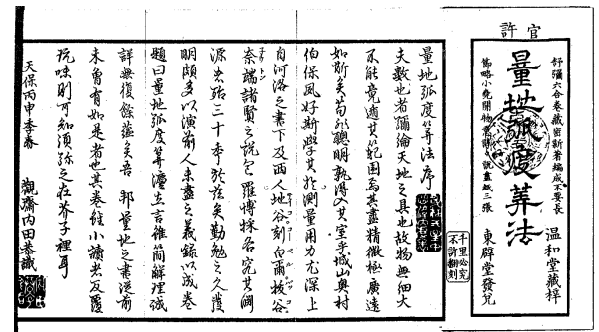 官許
舒彌六合卷藏密新著編成不要長
量地弧度筭法
篇略小堯開物
温和堂藏梓
東辟堂發兌
千里必究
不許翻刻
量地弧度筭法序
夫數也者彌淪天地之具也故物無細大
不能竟逃其範圍焉其盡精微極廣遠
如斯矣苟非聰明孰得入其室乎城山奥村
伯保夙好斯學其於測量用力尤深上
自河洛之書下及西人地谷刻白爾按谷
奈端諸賢之説包羅博採各究其淵
源出殆三十季於茲矣勤勉之久發
明頗多以演前人未盡之義録以成卷
題曰量地弧度筭灋立言雖簡解理誠
詳無復餘蘊矣吾邦量地之書從前
未曾有如是者也其卷雖小讀出反覆
玩味則可知須弥之在芥子裡耳
天保丙申季春
觀齋内田恭識